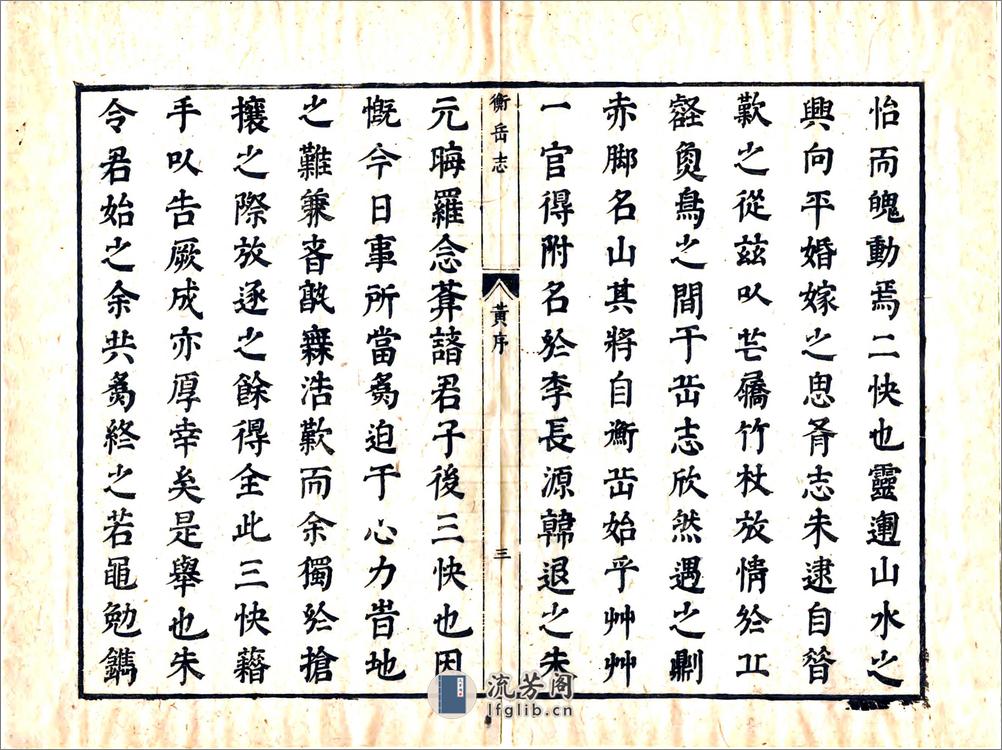 怡而魄動焉二快也靈運山水之
興向平婚嫁之思胥志未逮自昝
歎之從茲㕥芒屩竹杖放情於丘
壑魚鳥之間于岳志欣然遇之劘
赤脚名山其將自衡岳始乎艸艸
一官得附名於李長源韓退之朱
衡岳志
黃序
三
元晦羅念菴諸君子後三快也因
慨今日事所當為迫于心力昔地
之難兼者㪚無浩歎而余獨於搶
攘之際放逐之餘得全此三快藉
手㕥告厥成亦厚幸矣是舉也朱
令君始之余共為終之若黽勉鐫
流芳阁
lfglib.cn